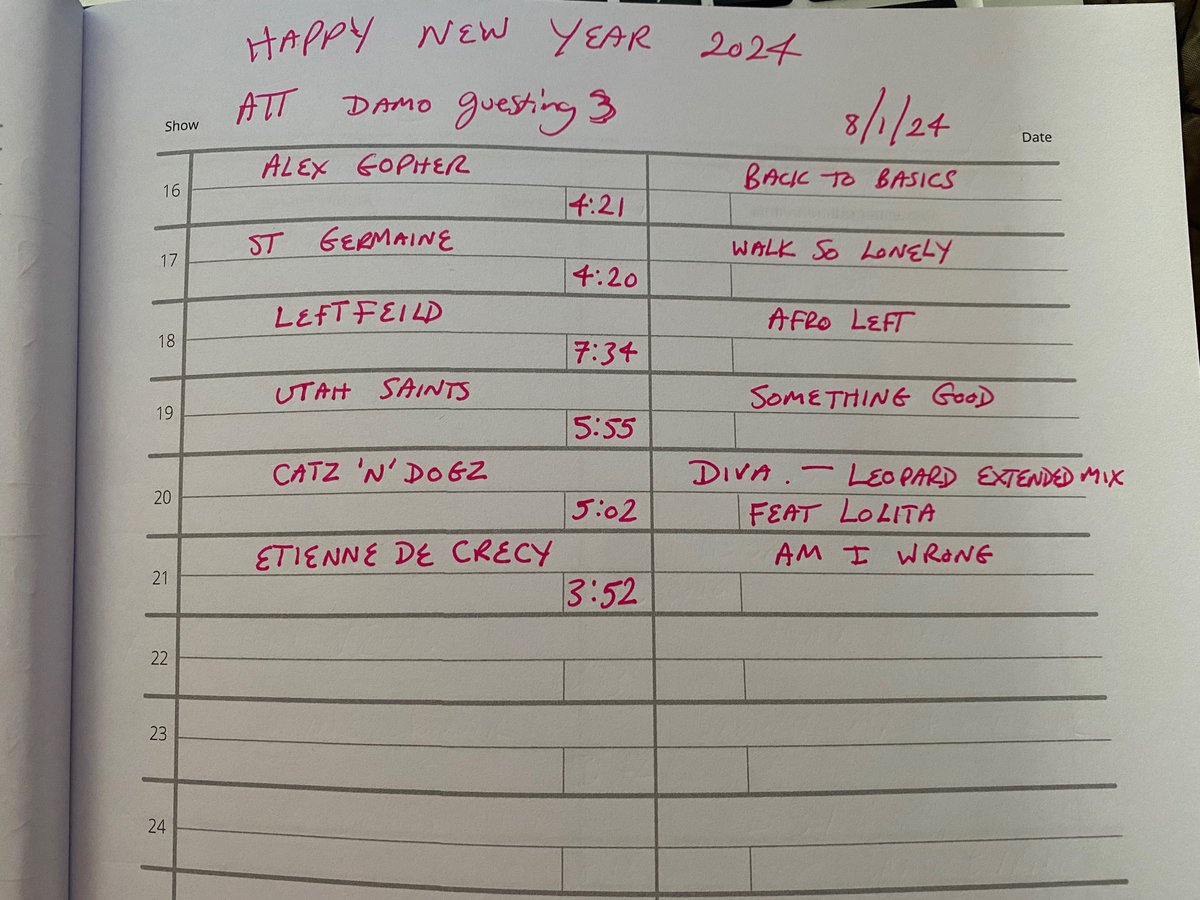 HAPPY NEW YEAR 2024
ATT DAMO guesting 3
8/1/24
Show
Date
16 ALEX GOPHER BACK TO BASICS
4:21
17 ST GERMAINE WALK SO LONELY
4:20
18 LEFTFEILD AFRO LEFT
7:34
19 UTAH SAINTS SOMETHING GOOD
5:55
20 CATZ 'N' DOGZ DIVA. — LEOPARD EXTENDED MIX
5:02 FEAT LOLITA
21 ETIENNE DE CRECY AM I WRONG
3:52
22
23
24